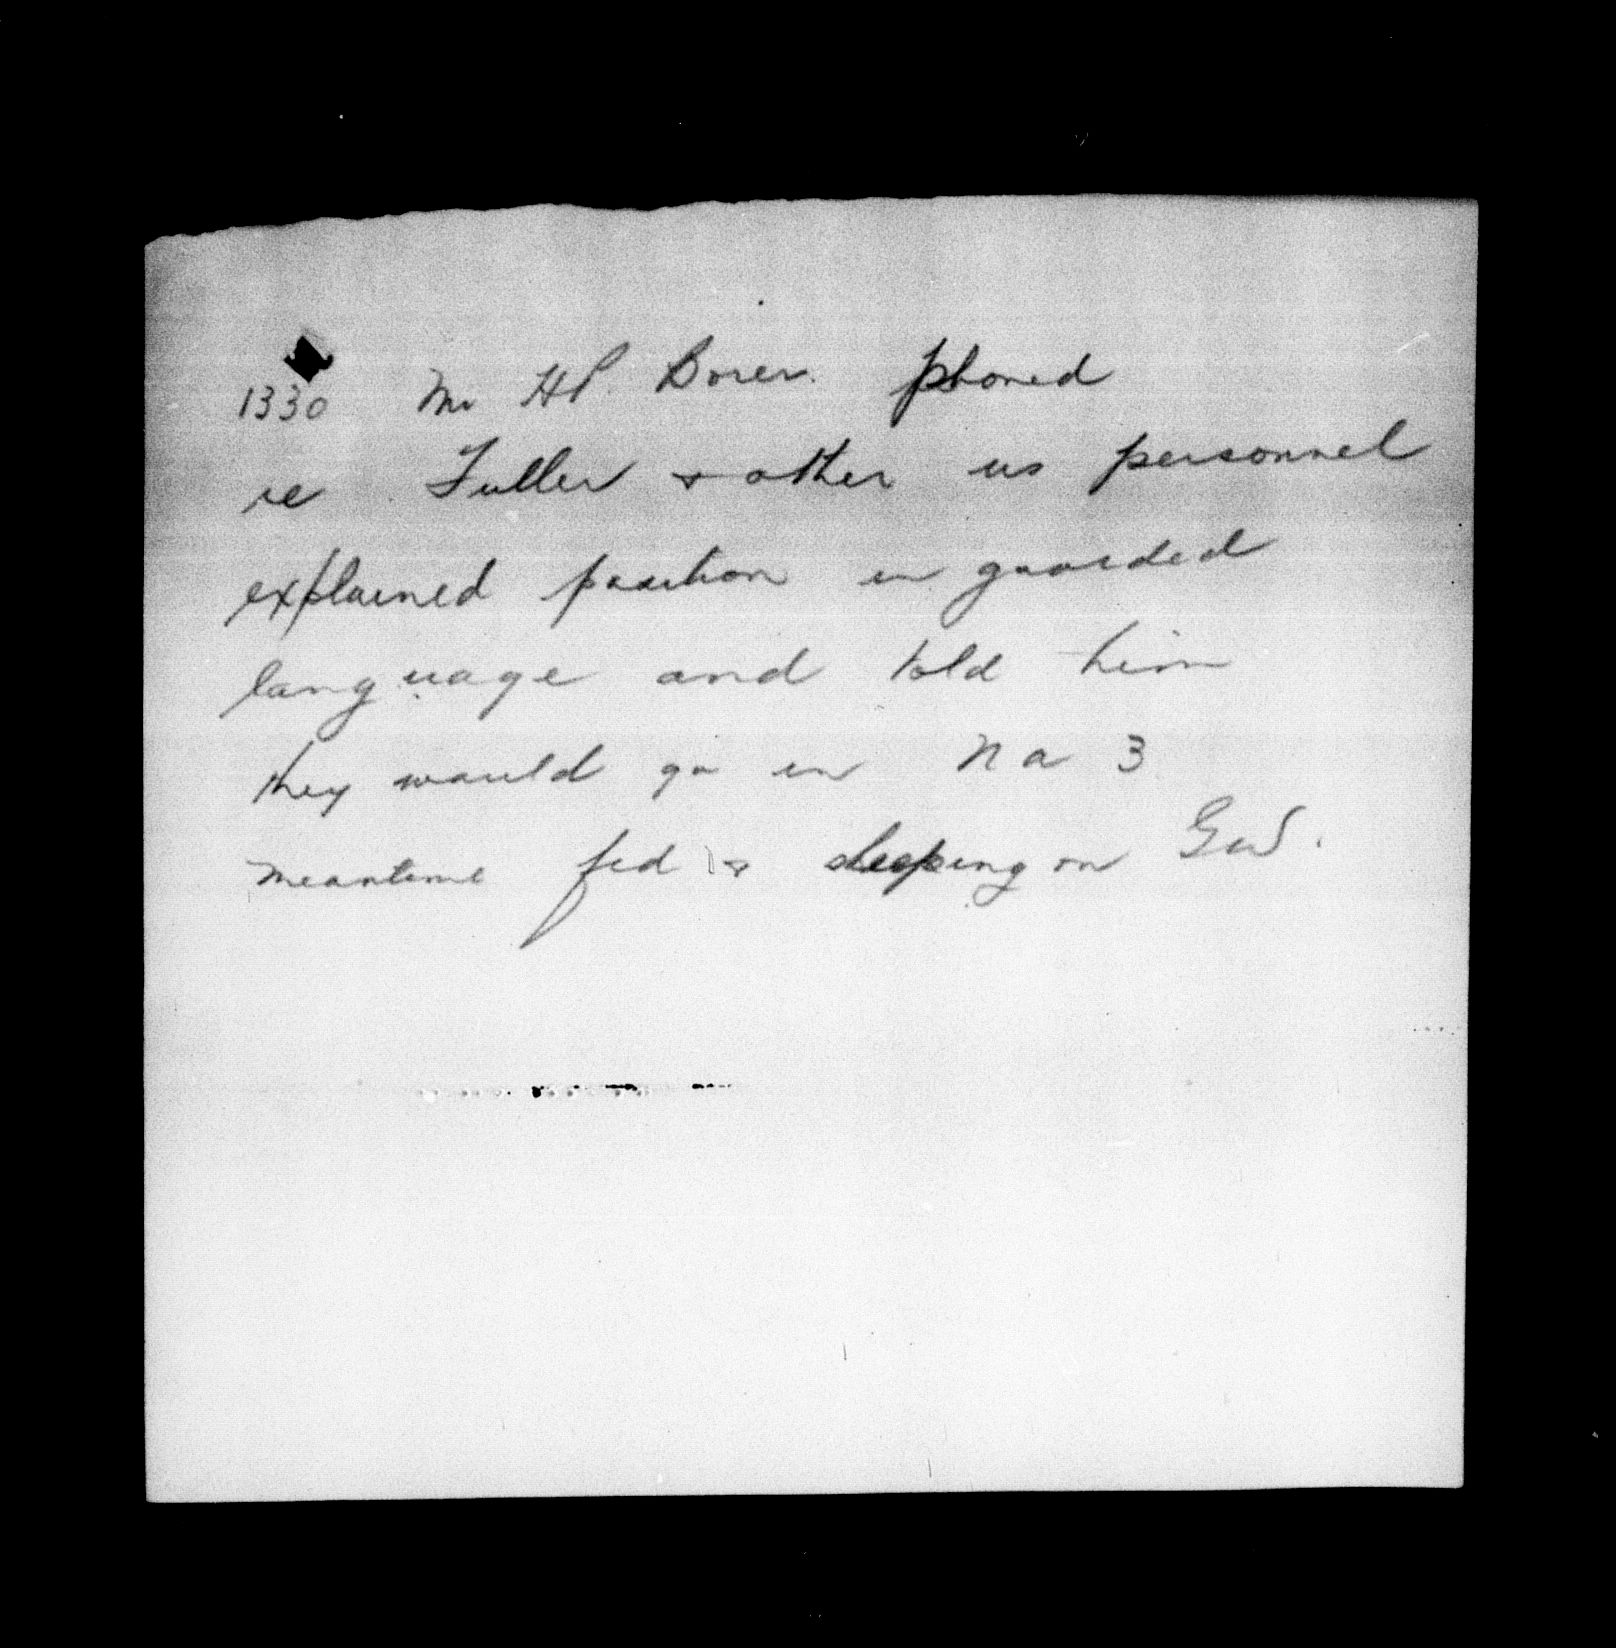 1330 Mr HP. Borer. phoned
re Fuller & other us personnel
explained position in guarded
language and told him
they would go in No 3
meantime fed & sleeping on